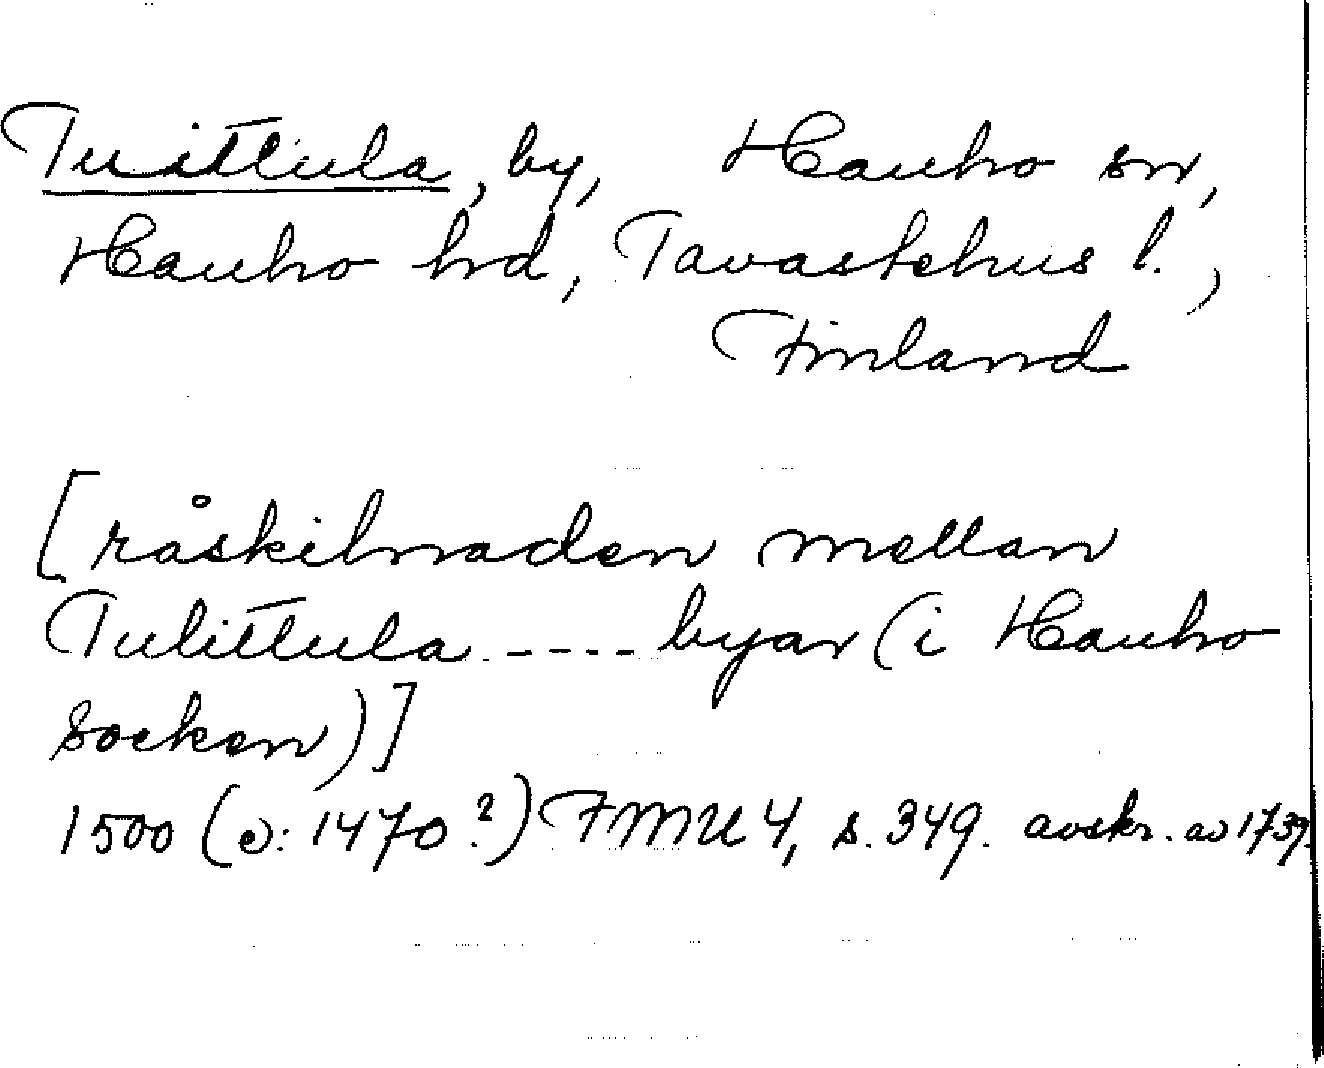 Tuittula, by, Hauho sn,
Hauho hd, Tavastehus l.,
Finland
[råskilnaden mellan
Tulittula ---- byar (i Hauho
socken)]
1500 (ɔ: 1470?) FMU 4, s. 349. avskr. av 1739.